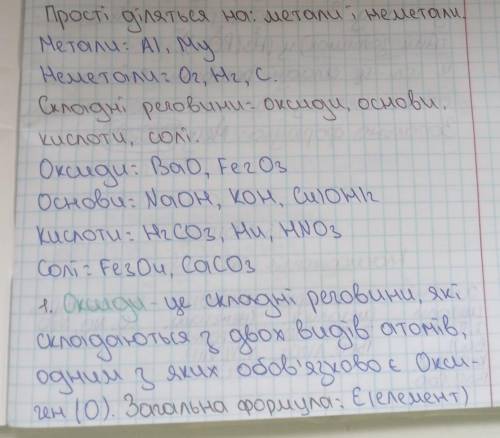 Прості діляться на: метали і неметали.
Метали: Al, Mg
Неметали: O2, H2, C.
Складні речовини: оксиди, основи,
кислоти, солі.
Оксиди: BaO, Fe2O3
Основи: NaOH, KOH, Cu(OH)2
Кислоти: H2CO3, HCl, HNO3
Солі: Fe3O4, CaCO3
1. Оксиди - це складні речовини, які
складаються з двох видів атомів,
одним з яких обов'язково є Окси-
ген (O). Загальна формула: E(елемент)